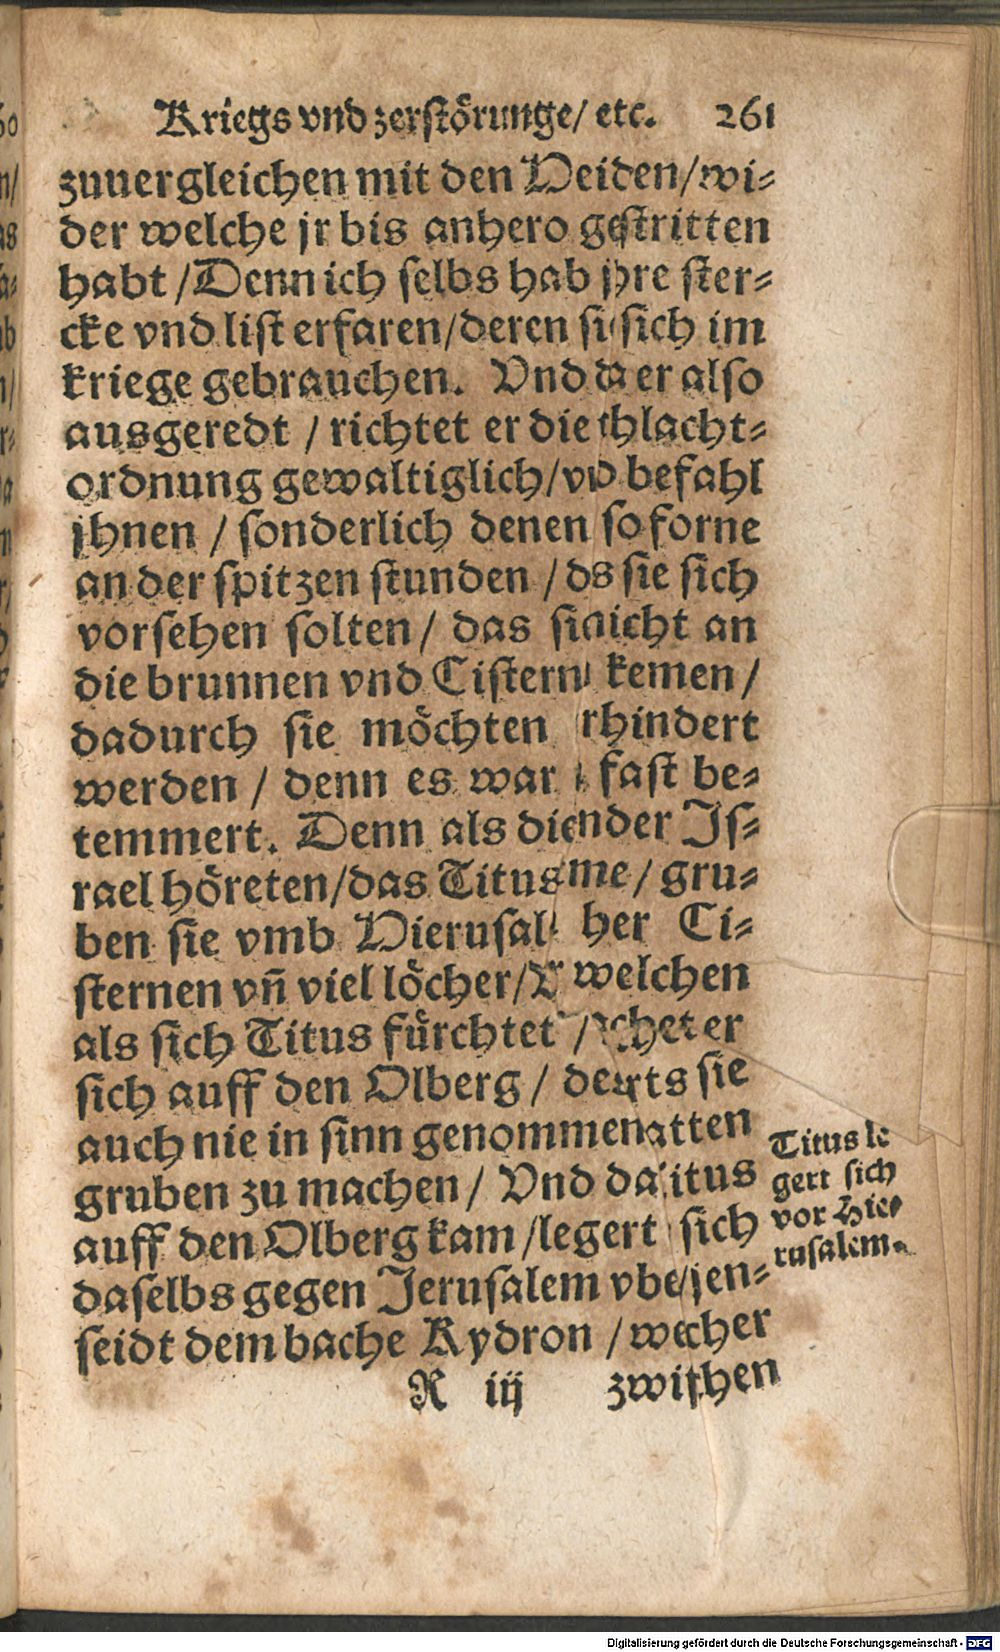 Kriegs vnd zerstörunge/ etc. 261
zuuergleichen mit den Heiden/wi-
der welche jr bis anhero gestritten
habt /Denn ich selbs hab jhre ster-
cke vnd list erfaren/deren si sich im
kriege gebrauchen. Vnd da er also
ausgeredt / richtet er die chlacht-
ordnung gewaltiglich/vnd befahl
jhnen / sonderlich denen so forne
an der spitzen stunden / ds sie sich
vorsehen solten/ das si nicht an
die brunnen vnd Cistern kemen/
dadurch sie möchten rhindert
werden / denn es war fast be-
temmert. Denn als die nder Js-
rael höreten/das Titus me/ gru-
ben sie vmb Hierusal her Ci-
sternen vñ viel löcher/V welchen
als sich Titus fürchtet / chet er
sich auff den Olberg / de rts sie
auch nie in sinn genommen atten
gruben zu machen/ Vnd da itus
auff den Olberg kam /legert sich
daselbs gegen Jerusalem vbe/jen-
seidt dem bache Kydron / wecher
R iij zwischen
Titus le
gert sich
vor Hie-
rusalem.
Digitalisierung gefördert durch die Deutsche Forschungsgemeinschaft - DFG